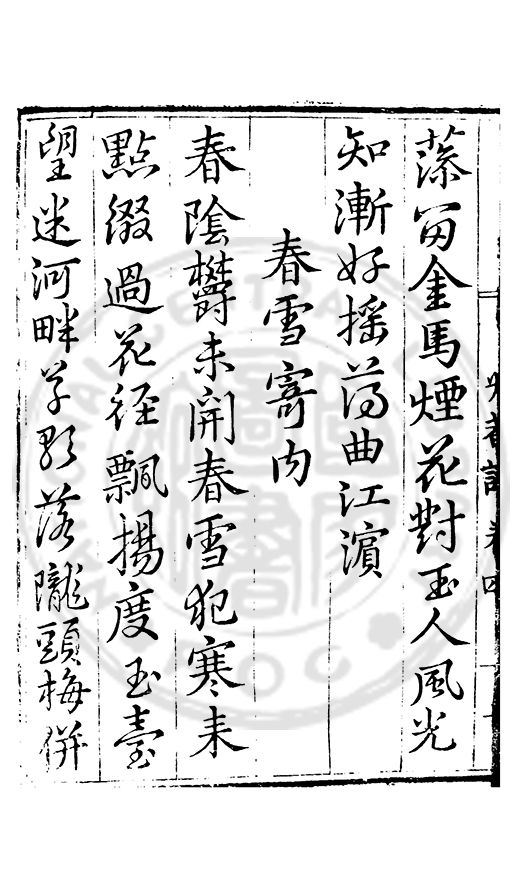 藻留金馬煙花對玉人風光
知漸好搖蕩曲江濵
春雪寄内
春陰欝未開春雪犯寒来
點綴過花徑飄揚度玉臺
望迷河畔草影落隴頭梅併